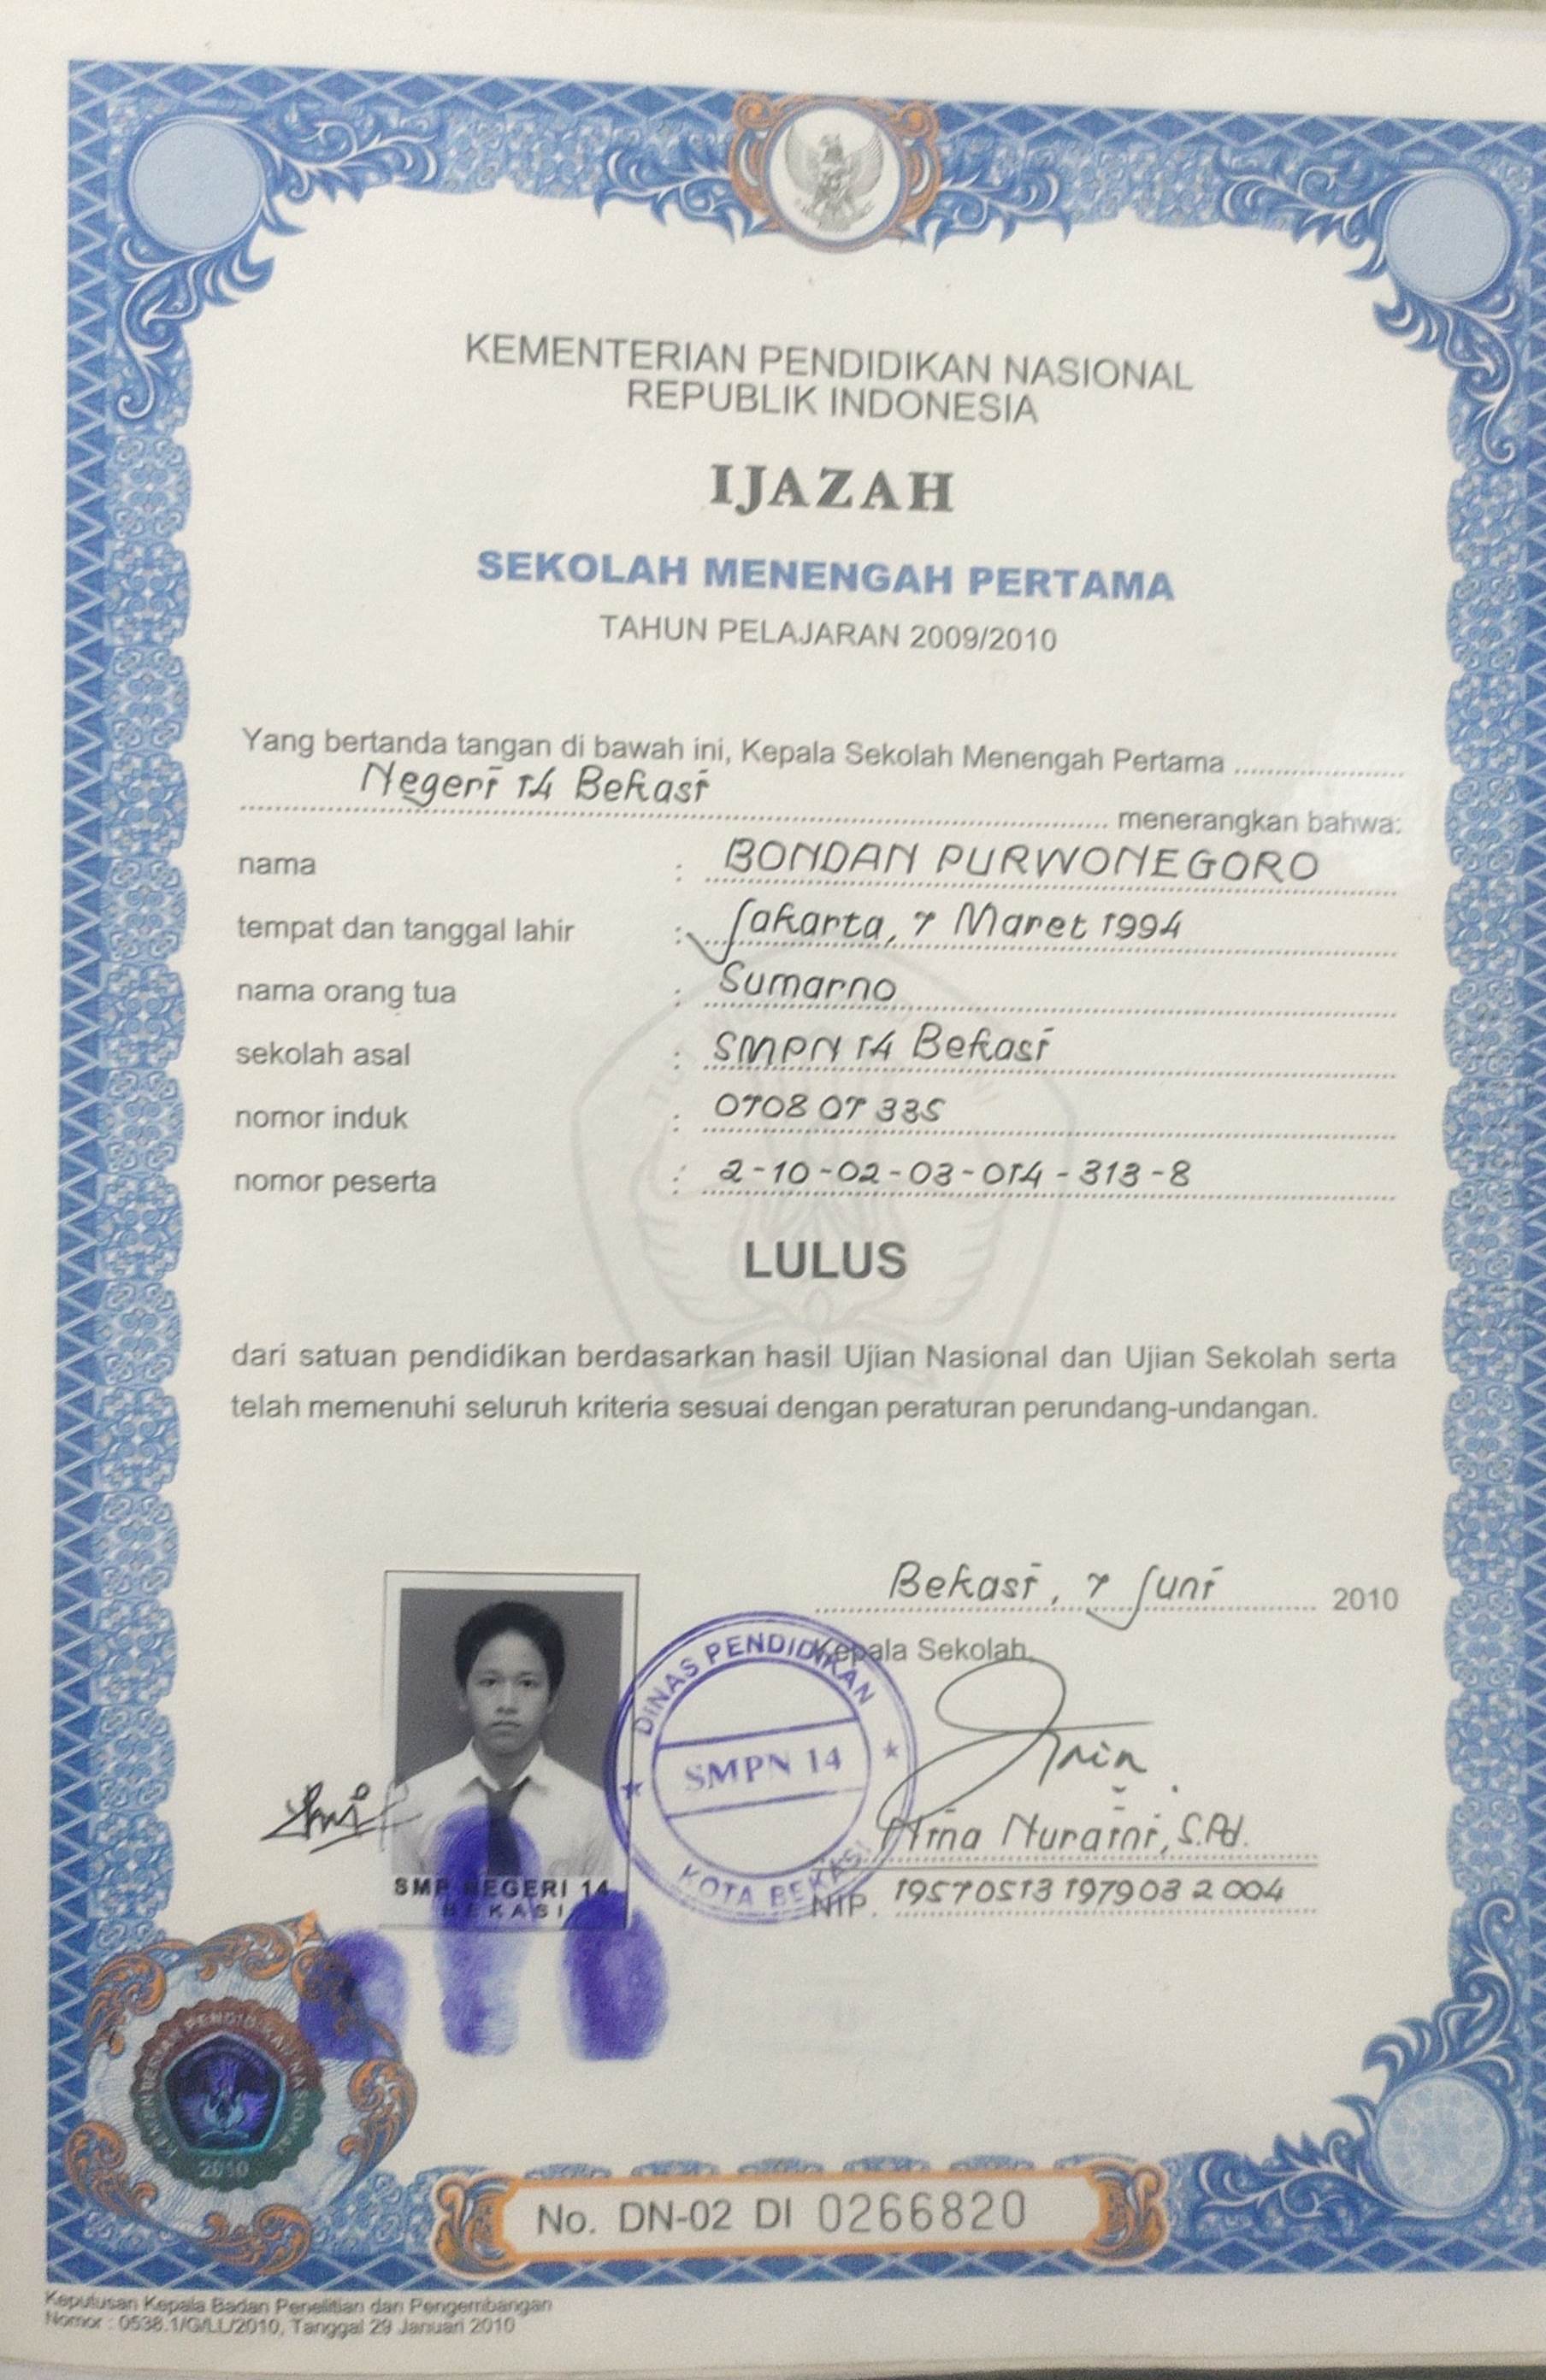 KEMENTERIAN PENDIDIKAN NASIONAL
REPUBLIK INDONESIA
IJAZAH
SEKOLAH MENENGAH PERTAMA
TAHUN PELAJARAN 2009/2010
Yang bertanda tangan di bawah ini, Kepala Sekolah Menengah Pertama
Negeri 14 Bekasi menerangkan bahwa:
nama : BONDAN PURWONEGORO
tempat dan tanggal lahir : Jakarta, 7 Maret 1994
nama orang tua : Sumarno
sekolah asal : SMPN 14 Bekasi
nomor induk : 0708 07 335
nomor peserta : 2-10-02-03-014-313-8
LULUS
dari satuan pendidikan berdasarkan hasil Ujian Nasional dan Ujian Sekolah serta
telah memenuhi seluruh kriteria sesuai dengan peraturan perundang-undangan.
Bekasi, 7 Juni 2010
Kepala Sekolah,
DINAS PENDIDIKAN
SMPN 14
KOTA BEKASI
Nina Nuraini, S.Pd.
NIP. 19570513 197903 2 004
SMP NEGERI 14
BEKASI
KEMENTERIAN PENDIDIKAN NASIONAL
2010
No. DN-02 DI 0266820
Keputusan Kepala Badan Penelitian dan Pengembangan
Nomor : 0538.1/G/LL/2010, Tanggal 29 Januari 2010